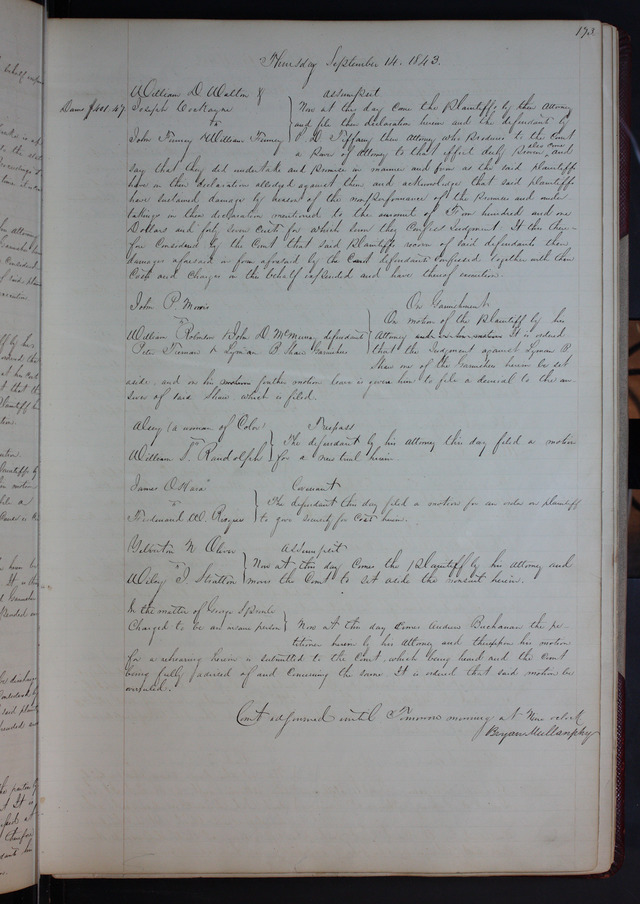 173
Thursday September 14. 1843.
William D. Walton &
assumpsit
Joseph
Dam $401.47
Now at this day come the Plaintiffs by their Attorney
vs
and file their declaration herein and the defendants by
John Finney & William Finney
P. D. Tiffany their Attorney who Produces to the Court
a Power of Attorney to that effect duly also comes and
say that they did undertake and Promise in manner and form as the said plaintiffs
have in their declaration alleged against them and acknowledge that said plaintiffs
have sustained damage by reason of the nonperformance of the Promises and under
takings in their declaration mentioned to the amount of Four hundred and one
Dollars and forty seven Cents for which sum they Confess Judgment It is there-
fore Considered by the Court that said plaintiffs recover of said defendants their
damages aforesaid in form aforesaid by the Court defendants Confessed together with their
Costs and Charges in this behalf expended and have thereof execution.
John P. Morris
On Garnishment
vs
On motion of the Plaintiff by his
William Robinson & John D. McMurray defendants
Attorney It is ordered
Peter & Lyman B. Shaw Garnishees
that the Judgment against Lyman B.
Shaw one of the Garnishees herein be set
aside. and on his motion further motion leave is given him to file a denial to the an-
swer of said Shaw. which is filed.
Alsey (a woman of Color)
Trespass
vs
The defendant by his attorney this day filed a motion
William T. Randolph
for a new trial herein.
James O'Hara
Covenant
vs
The defendant this day filed a motion for an order on plaintiff
Ferdinand W.
to give security for Cost herein.
Yelverton N. Oliver
assumpsit
vs
Now at this day Comes the Plaintiff by his attorney and
Wiley J. Stratton
moves the Court to set aside the nonsuit herein.
In the matter of George
Charged to be an insane person
Now at this day Comes Andrew Buchanan the pe-
titioner herein by his Attorney and thereupon his motion
for a rehearing herein is submitted to the Court, which being heard and the Court
being fully advised of and Concerning the same. It is ordered that said motion be
overruled.
Court adjourned until Tomorrow morning at Nine oclock
Bryan Mullanphy